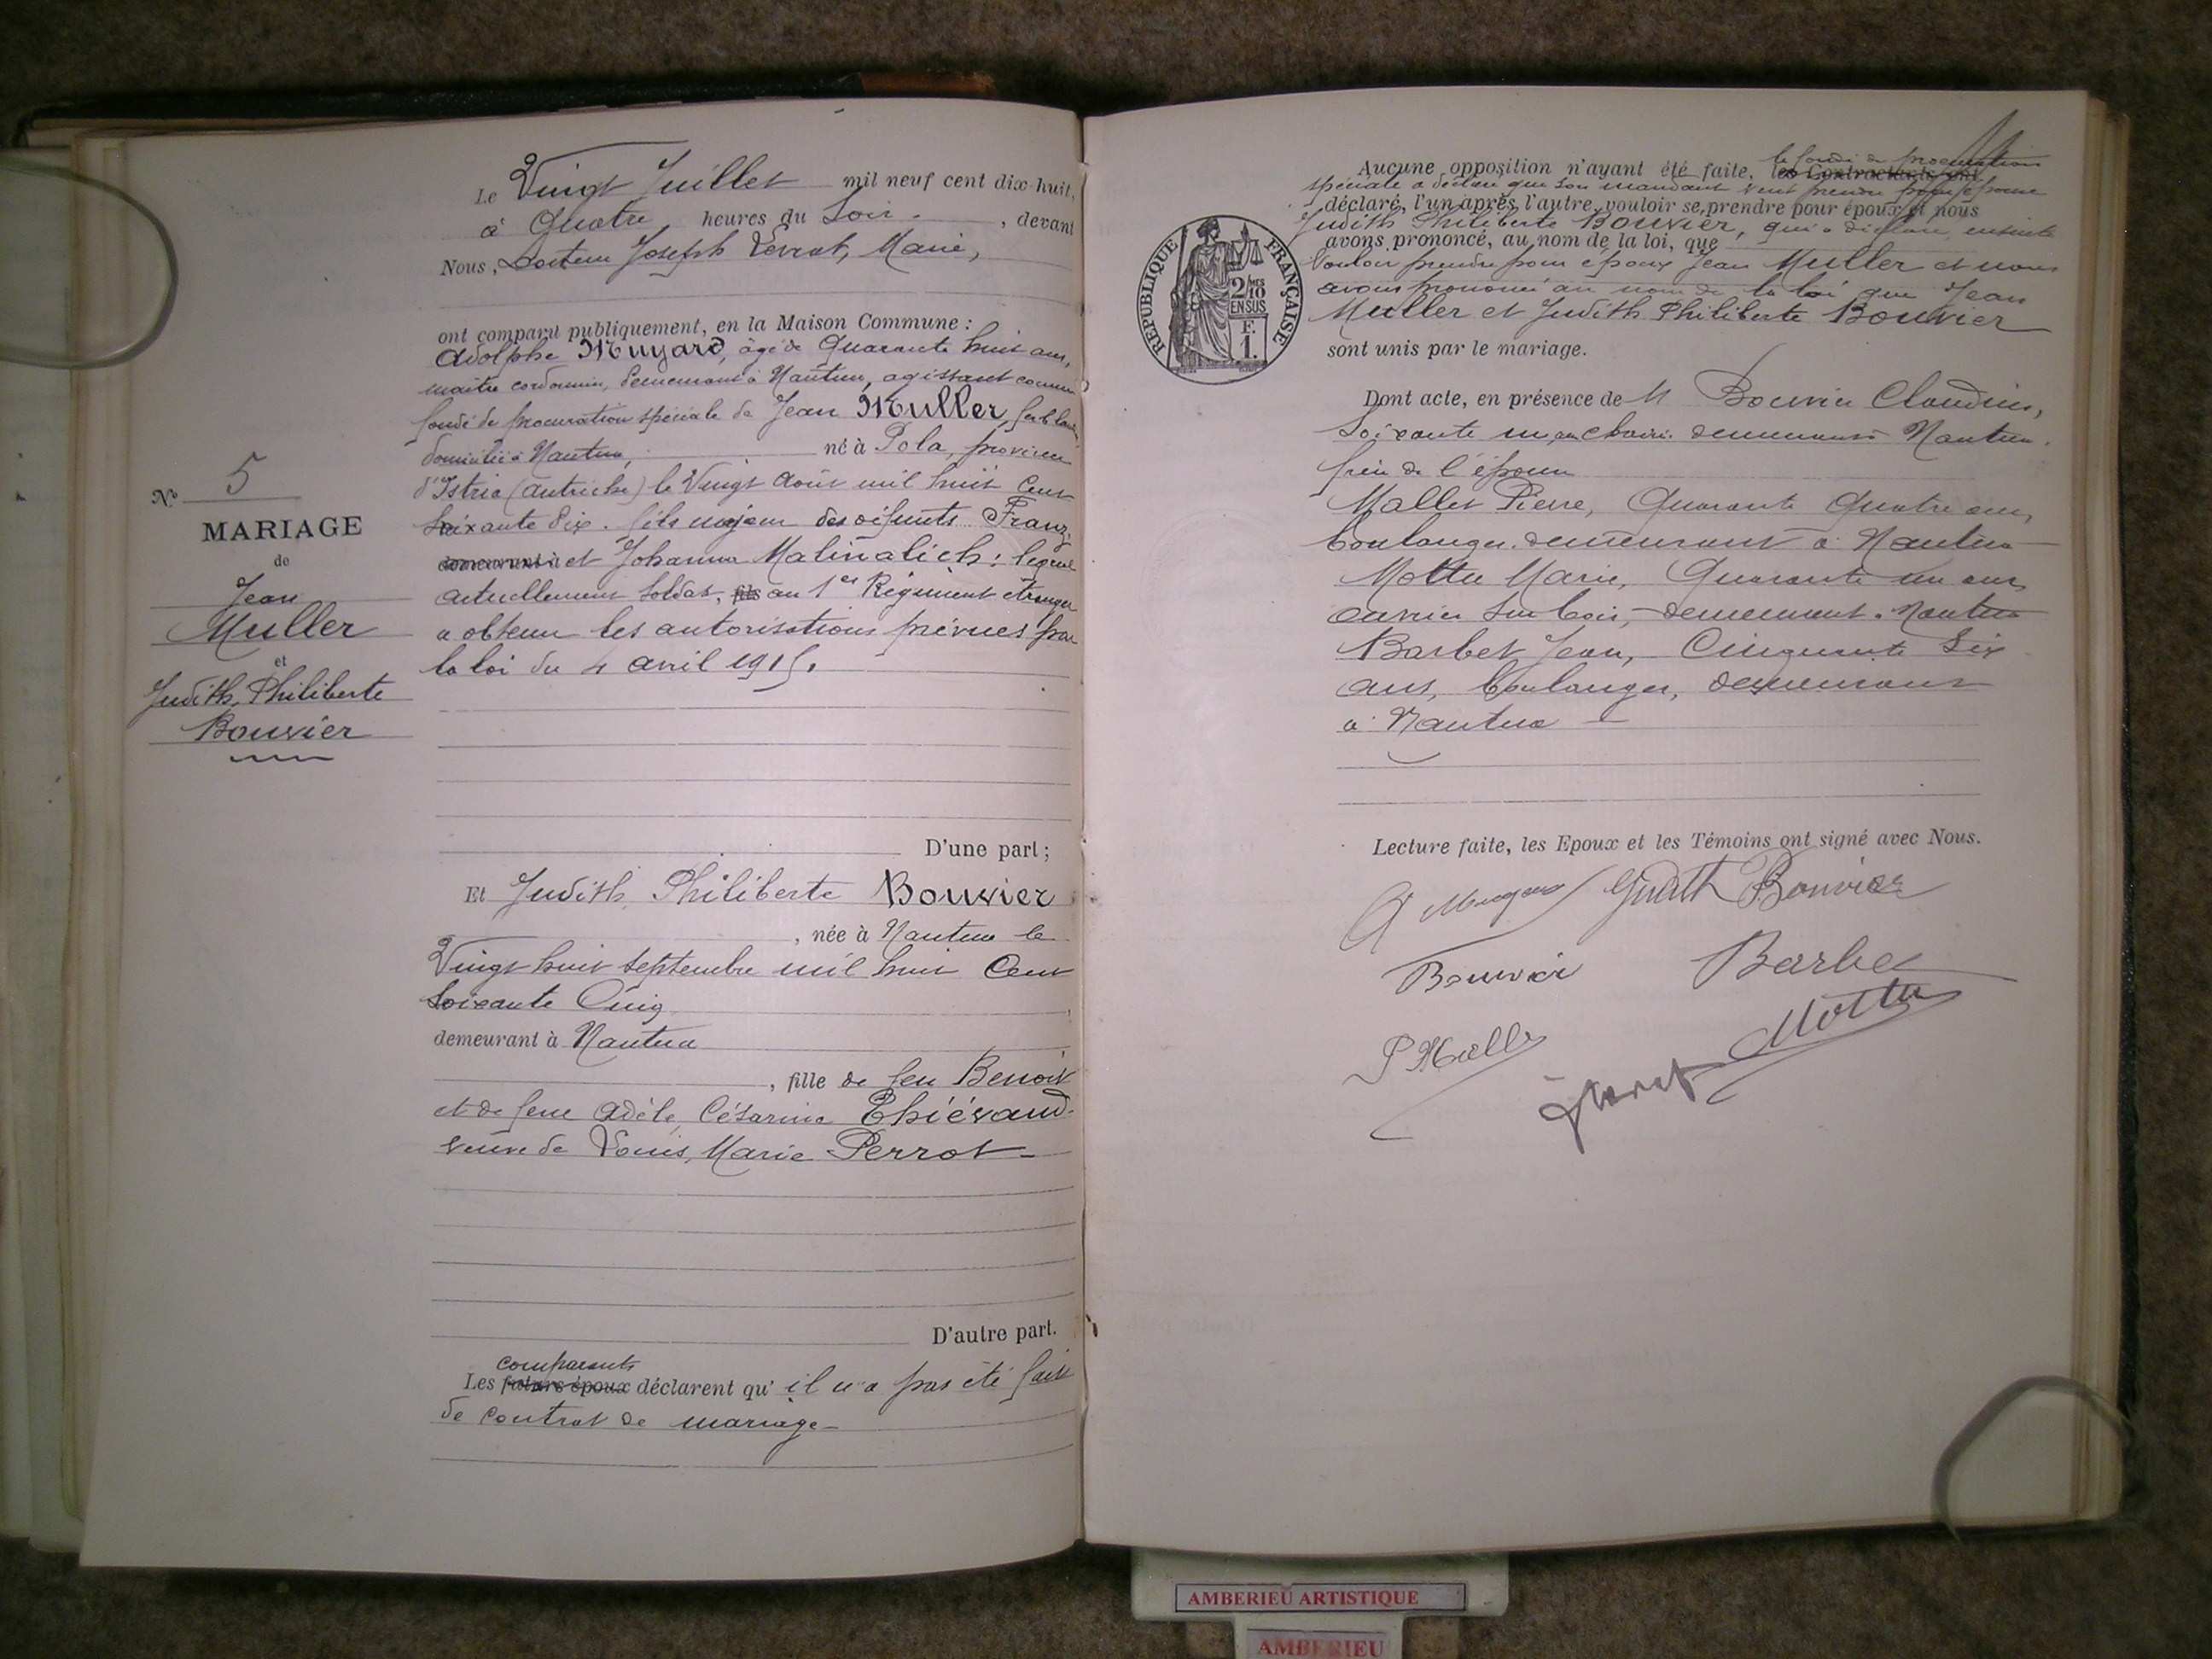 Le Vingt Juillet mil neuf cent dix-huit,
à Quatre heures du Soir, devant
Nous, Docteur Joseph Levrat, Maire,
ont comparu publiquement, en la Maison Commune :
Adolphe Muyard, âgé de Quarante huit ans,
maître cordonnier, demeurant à Nantua, agissant comme
fondé de procuration spéciale de Jean Muller,
domicilié à Nantua, né à Pola, province
d'Istrie (Autriche) le Vingt Août mil huit Cent
Soixante Dix. fils majeur des défunts Franz
demeurant à et Johanna Malinalich: lequel
actuellement soldat, fils au 1er Régiment étranger
a obtenu les autorisations prévues par
la loi du 4 avril 1915.
N° 5
MARIAGE
de
Jean
Muller
et
Judith, Philiberte
Bouvier
D'une part ;
Et Judith, Philiberte Bouvier
, née à Nantua le
Vingt huit septembre mil huit Cent
Soixante Cinq
demeurant à Nantua
, fille de feu Benoit
et de feue Adèle, Césarine Thiévaud
veuve de Louis, Marie Perrot
D'autre part.
comparants
Les futurs époux déclarent qu' il n'a pas été fait
de contrat de mariage
RÉPUBLIQUE FRANÇAISE
2/10MES
EN SUS
F.
1.
le fondé de procuration
Aucune opposition n'ayant été faite, les Contractants ont
spéciale a déclaré que son mandant veut prendre pour épouse
déclaré, l'un après l'autre, vouloir se prendre pour époux et nous
Judith Philiberte Bouvier, qui a déclaré ensuite
avons prononcé, au nom de la loi, que
Vouloir prendre pour époux Jean Muller et nous
avons prononcé au nom de la loi que Jean
Muller et Judith Philiberte Bouvier
sont unis par le mariage.
Dont acte, en présence de M Bouvier Claudius,
Soixante un ans demeurant Nantua.
frère de l'épouse
Mallet Pierre, Quarante Quatre ans,
boulanger demeurant à Nantua
Mottu Marie, Quarante un ans
ouvrier sur bois, demeurant Nantua
Barbet Jean, Cinquante Six
ans, boulanger, demeurant
à Nantua
Lecture faite, les Epoux et les Témoins ont signé avec Nous.
A Muyard Judith Bouvier
Bouvier Barbet
P Mallet Mottu
AMBERIEU ARTISTIQUE
AMBERIEU